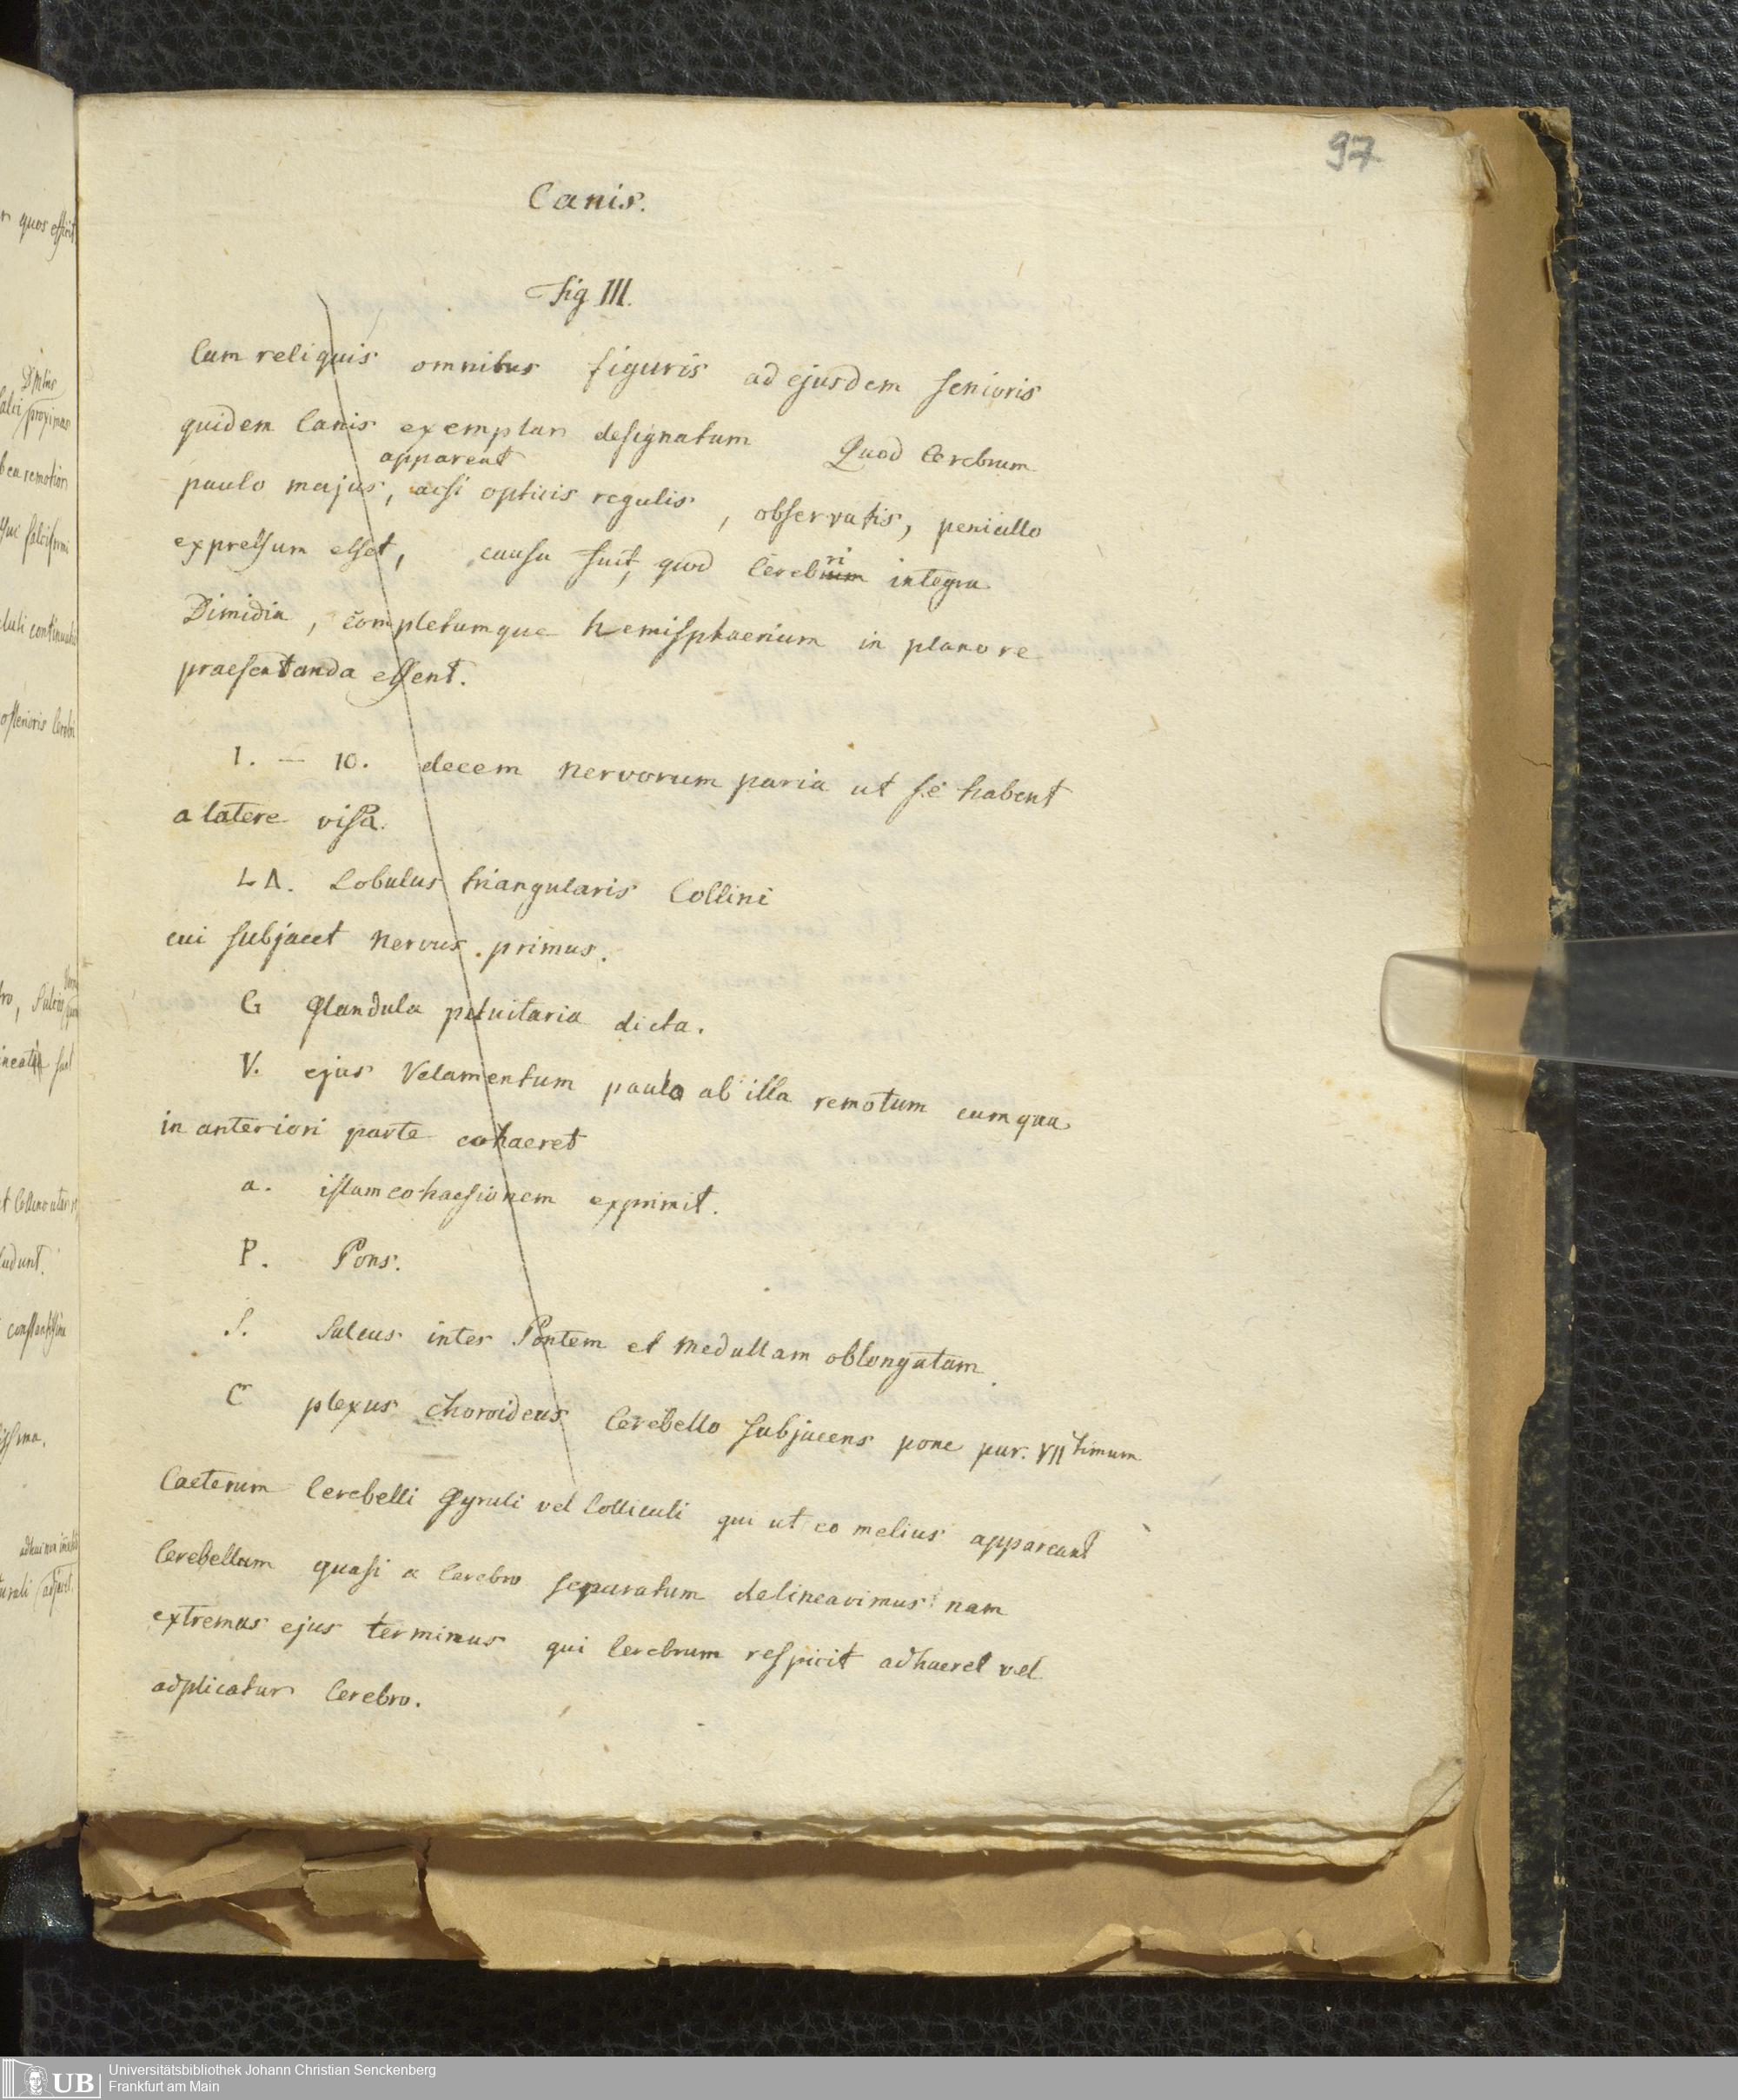 97
Canis.
Fig III.
Cum reliquis omnibus figuris ad ejusdem senioris
quidem Canis exemplar designatum Quod Cerebrum
appareat
paulo majus, acsi opticis regulis, observatis, penicillo
expressum esset, causa fuit, quod Cerebri integra
Dimidia, completumque hemisphaerium in plano re
praesentanda essent.
1. — 10. decem nervorum paria ut se habent
a latere visa.
L Δ. Lobulus triangularis Collini
cui subjacet nervus primus.
G Glandula pituitaria dicta.
V. ejus Velamentum paulo ab illa remotum cum qua
in anteriori parte cohaeret
a. istam cohaesionem exprimit.
P. Pons.
S. Sulcus inter Pontem et medullam oblongatam.
C plexus choroideus Cerebello subjacens pone par. VIItimum
Caeterum Cerebelli Gyruli vel Colliculi qui ut eo melius appareant
Cerebellum quasi a Cerebro separatum delineavimus: nam
extremus ejus terminus qui Cerebrum respicit adhaeret vel
adplicatur Cerebro.
UB
Universitätsbibliothek Johann Christian Senckenberg
Frankfurt am Main